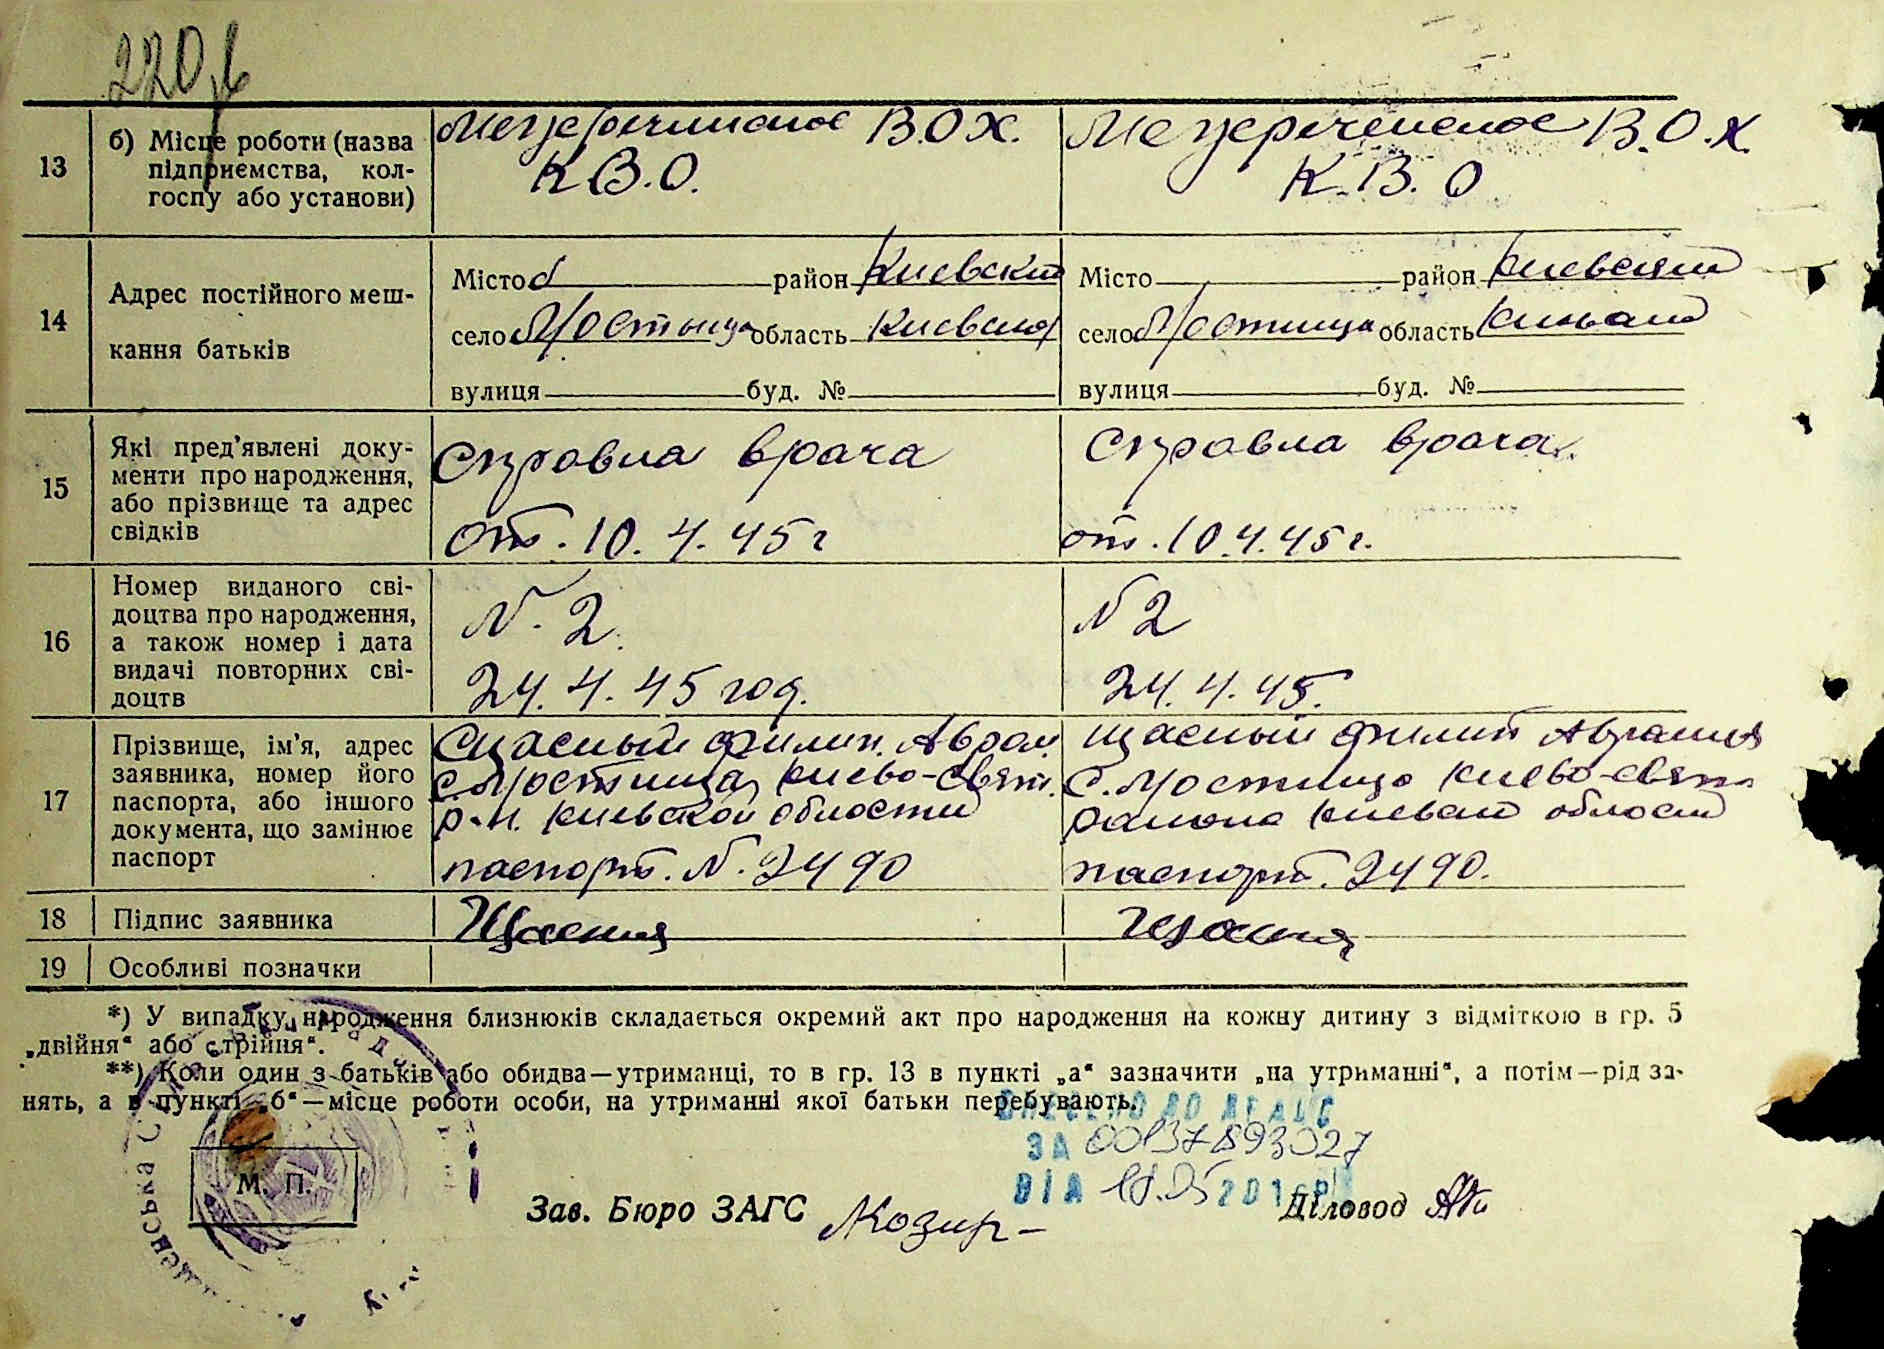 220
13
б) Місце роботи (назва
підприємства, кол-
госпу або установи)
В.О.Х.
К.В.О.
В.О.Х.
К.В.О
14
Адрес постійного меш-
кання батьків
Місто район Киевский
село Мостище область Киевская
вулиця буд. №
Місто район Киевский
село Мостище область
вулиця буд. №
15
Які пред'явлені доку-
менти про народження,
або прізвище та адрес
свідків
Справка врача
от. 10. 4. 45 г
Справка врача
от. 10.4.45 г.
16
Номер виданого сві-
доцтва про народження,
а також номер і дата
видачі повторних сві-
доцтв
N. 2.
24. 4. 45 год.
N 2
24. 4. 45.
17
Прізвище, ім'я, адрес
заявника, номер його
паспорта, або іншого
документа, що замінює
паспорт
Счасный Филип. Авром
с. Мостища, Киево-Свят.
р-н. Киевской области
паспорт. N. 2490
Щасный Филип
с. Мостище Киево-Свят.
района области
паспорт. 2490.
18
Підпис заявника
19
Особливі позначки
*) У випадку народження близнюків складається окремий акт про народження на кожну дитину з відміткою в гр. 5
„двійня“ або „трійня“.
**) Коли один з батьків або обидва—утриманці, то в гр. 13 в пункті „а“ зазначити „на утриманні“, а потім—рід за-
нять, а в пункті „б“—місце роботи особи, на утриманні якої батьки перебувають.
ВНЕСЕНО ДО ДРАЦС
ЗА 00137893027
ВІД
М. П.
Зав. Бюро ЗАГС Козир
Діловод